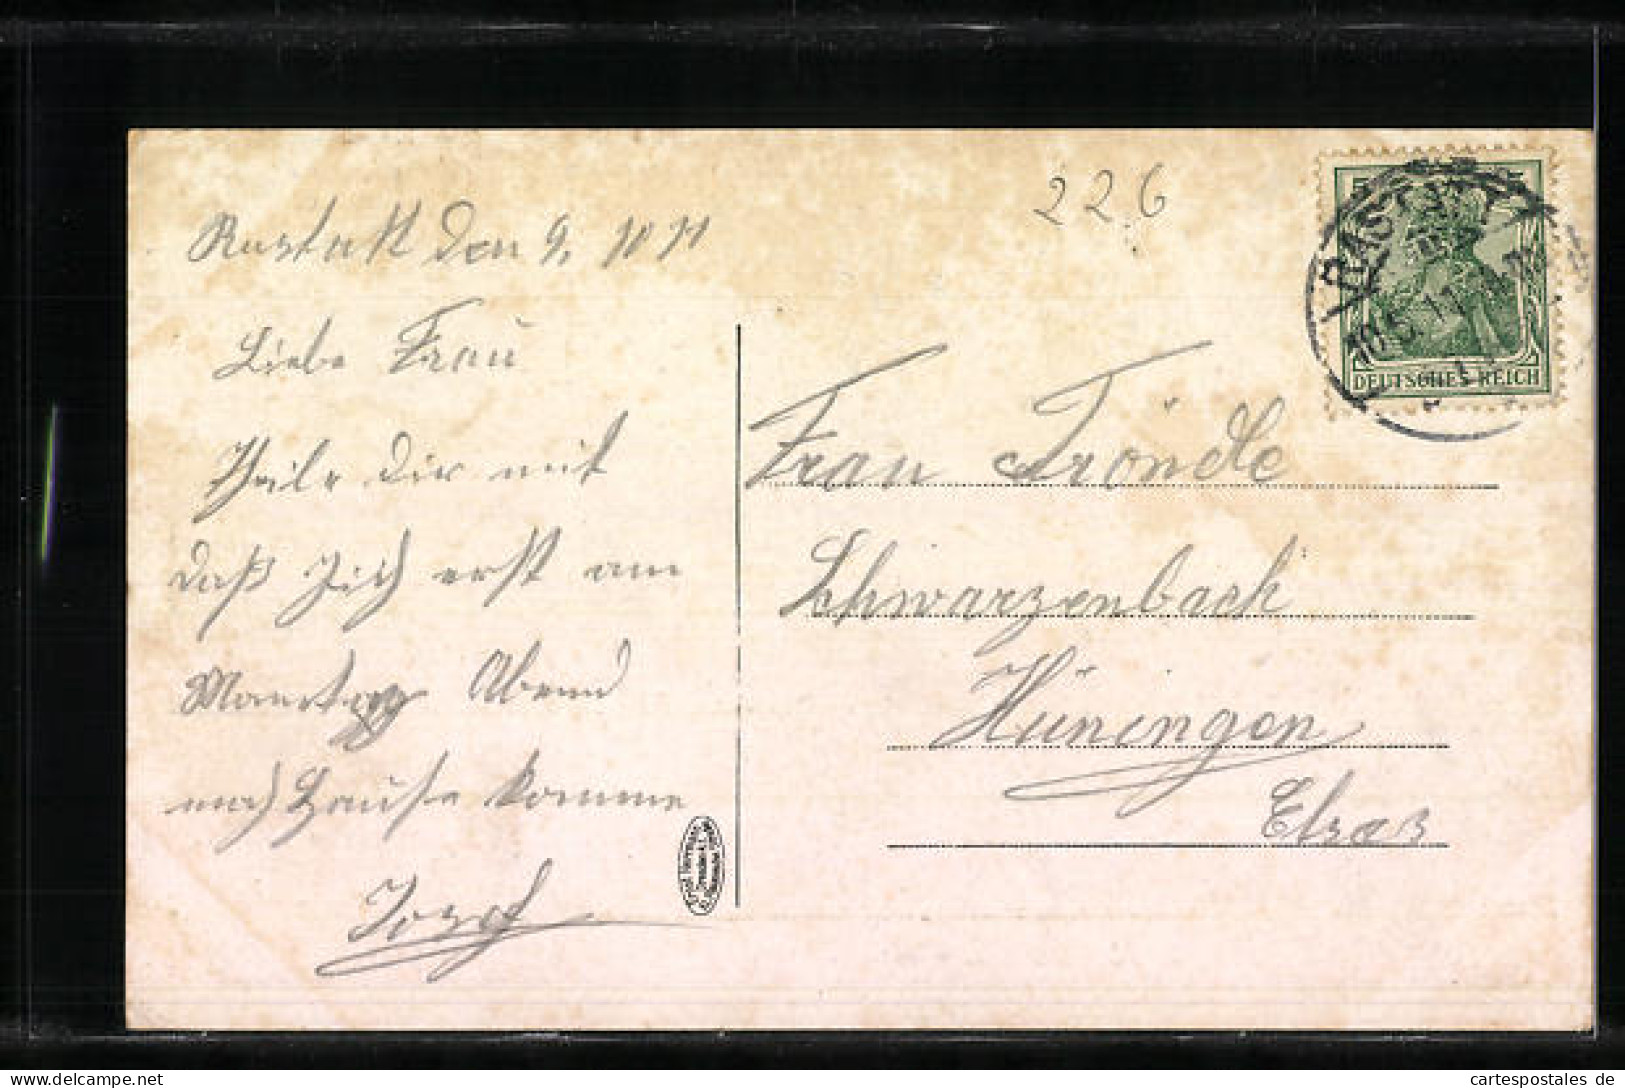 226
Rastatt den 9.
Liebe Frau
Theile dir mit
daß Ich erst am
Abend
nach Hause komme
Josef
Frau Tröndle
Schwarzenbach
Hüningen
Elsas
RASTATT
10.5.11
DEUTSCHES REICH
www.cartespostales.de